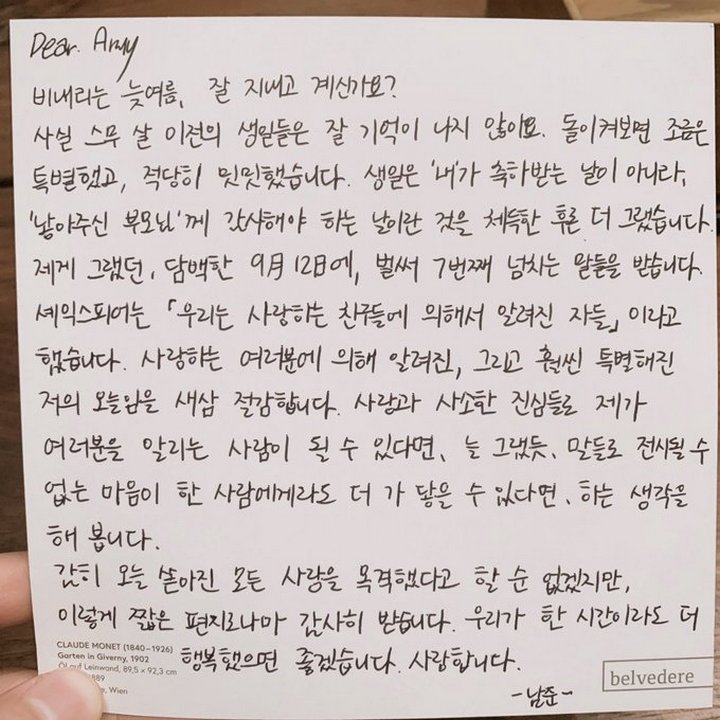 Dear. Army
비내리는 늦여름, 잘 지내고 계신가요?
사실 스무 살 이전의 생일들은 잘 기억이 나지 않아요. 돌이켜보면 조금은
특별했고, 적당히 밋밋했습니다. 생일은 '내'가 축하받는 날이 아니라,
'낳아주신 부모님'께 감사해야 하는 날이란 것을 체득한 후론 더 그랬습니다.
제게 그랬던, 담백한 9月 12日에, 벌써 7번째 넘치는 말들을 받습니다.
셰익스피어는 「우리는 사랑하는 친구들에 의해서 알려진 자들」 이라고
했습니다. 사랑하는 여러분에 의해 알려진, 그리고 훨씬 특별해진
저의 오늘임을 새삼 절감합니다. 사랑과 사소한 진심들로 제가
여러분을 알리는 사람이 될 수 있다면, 늘 그랬듯, 말들로 전시될 수
없는 마음이 한 사람에게라도 더 가 닿을 수 있다면, 하는 생각을
해 봅니다.
감히 오늘 쏟아진 모든 사랑을 목격했다고 할 순 없겠지만,
이렇게 짧은 편지로나마 감사히 받습니다. 우리가 한 시간이라도 더
행복했으면 좋겠습니다. 사랑합니다.
-남준-
CLAUDE MONET (1840–1926)
Garten in Giverny, 1902
Öl auf Leinwand, 89,5 × 92,3 cm
3889
Wien
belvedere